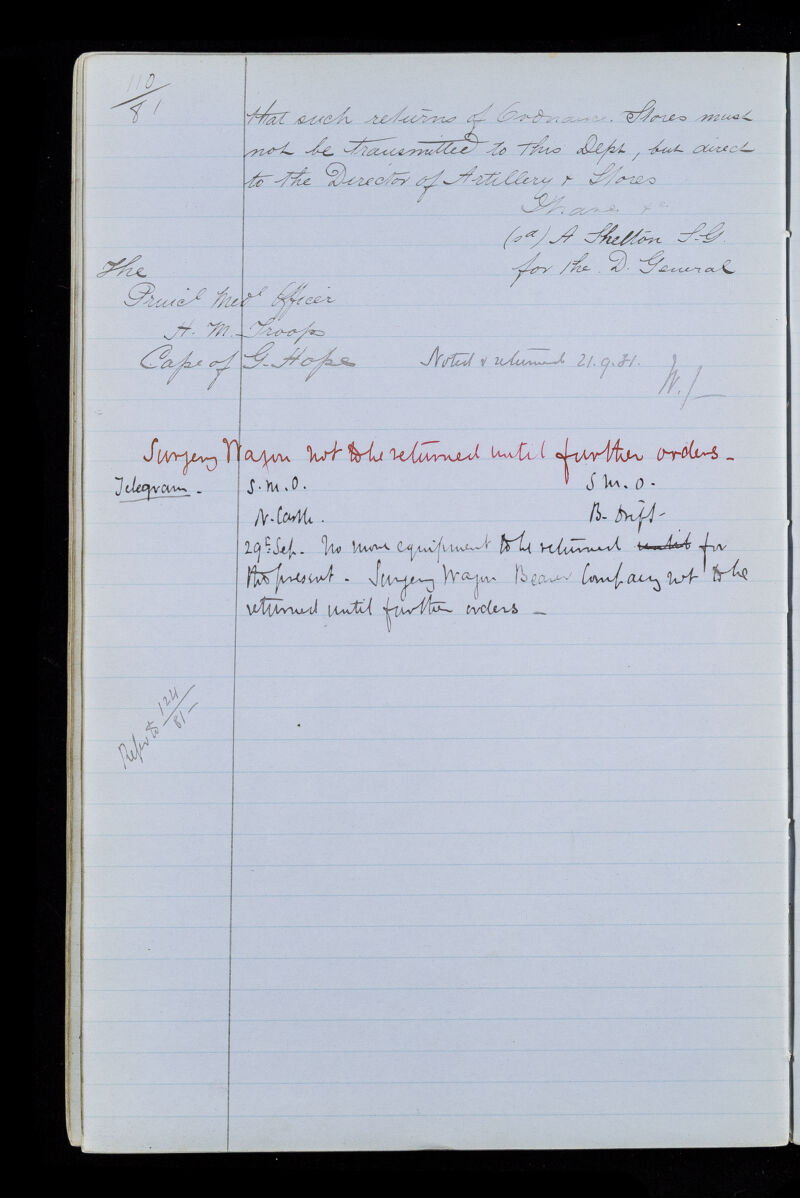 110
81
that such returns of Ordnance Stores must
not be transmitted to this Dept, but direct
to the Director of Artillery & Stores
I have &c
(sd) A Shelton S.G.
for the D. General
The
Princl Medl Officer
H. M. Troops
Cape of G. Hope
Noted & returned 21.9.81.
Surgery Wagon not to be returned until further orders _
Telegram.
S.M.O. S.M.O.
N. Castle. B. Drift
29th Sep. No more equipment to be returned until for
the present. Surgery Wagon Bearer Company not to be
returned until further orders _
Refer to 124
81